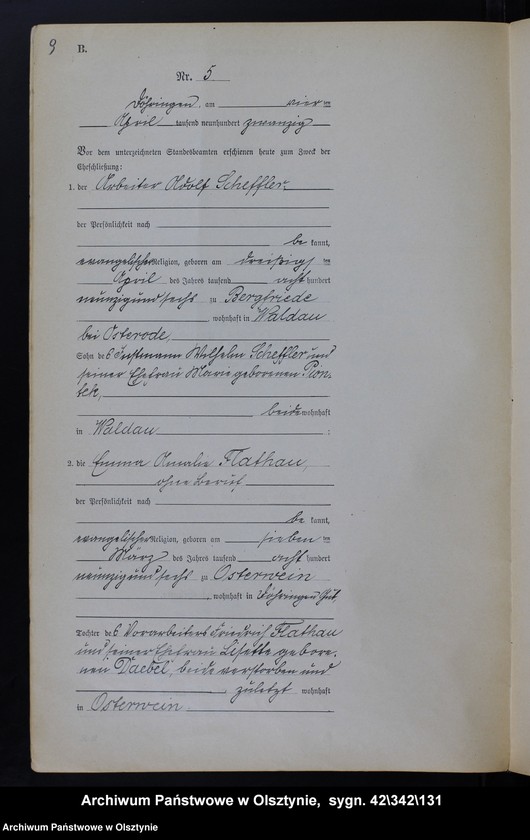 9 B.
Nr. 5
Döhringen, am vier ten
April tausend neunhundert zwanzig
Vor dem unterzeichneten Standesbeamten erschienen heute zum Zweck der
Eheschließung:
1. der Arbeiter Adolf Scheffler,
der Persönlichkeit nach
be kannt,
evangelischer Religion, geboren am dreißigs ten
April des Jahres tausend acht hundert
neunzigundsechs zu Bergfriede
, wohnhaft in Waldau
bei Osterode,
Sohn des Instmann Wilhelm Scheffler und
seiner Ehefrau Marie geborenen Pion-
tek,
beide wohnhaft
in Waldau ;
2. die Emma Amalie Flathau,
ohne Beruf
der Persönlichkeit nach
be kannt,
evangelischer Religion, geboren am sieben ten
März des Jahres tausend acht hundert
neunzigundsechs zu Osterwein
, wohnhaft in Döhringen Gut
Tochter des Vorarbeiters Friedrich Flathau
und seiner Ehefrau Lisette gebore-
nen Daebel, beide verstorben und
zuletzt wohnhaft
in Osterwein
Archiwum Państwowe w Olsztynie, sygn. 42\342\131
Archiwum Państwowe w Olsztynie